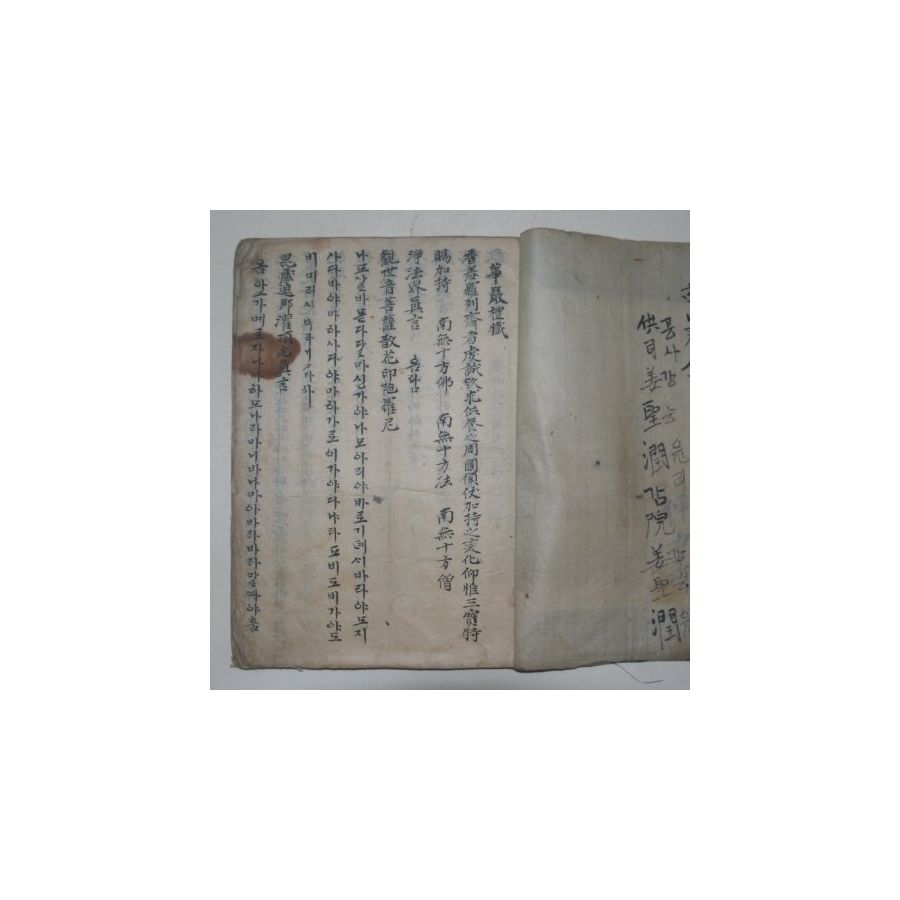 華嚴禮懺
香羞羅列齋者虔誠欲求供養之周圓須仗加持之變化仰惟三寶特
賜加持 南無十方佛 南無十方法 南無十方僧
淨法界眞言 옴람
觀世音菩薩散花印陁羅尼
나모 다다 마신가야나모아리야바로기 시바라야모지
사다바야마하사다야마하가로 이가야다냐타 도비도비가야도
비마라 하
毘盧遮那灌頂光眞言
옴아 가 마하모나라마니바나마아바라바라 야훔
공사강
供司姜聖潤 院姜聖潤